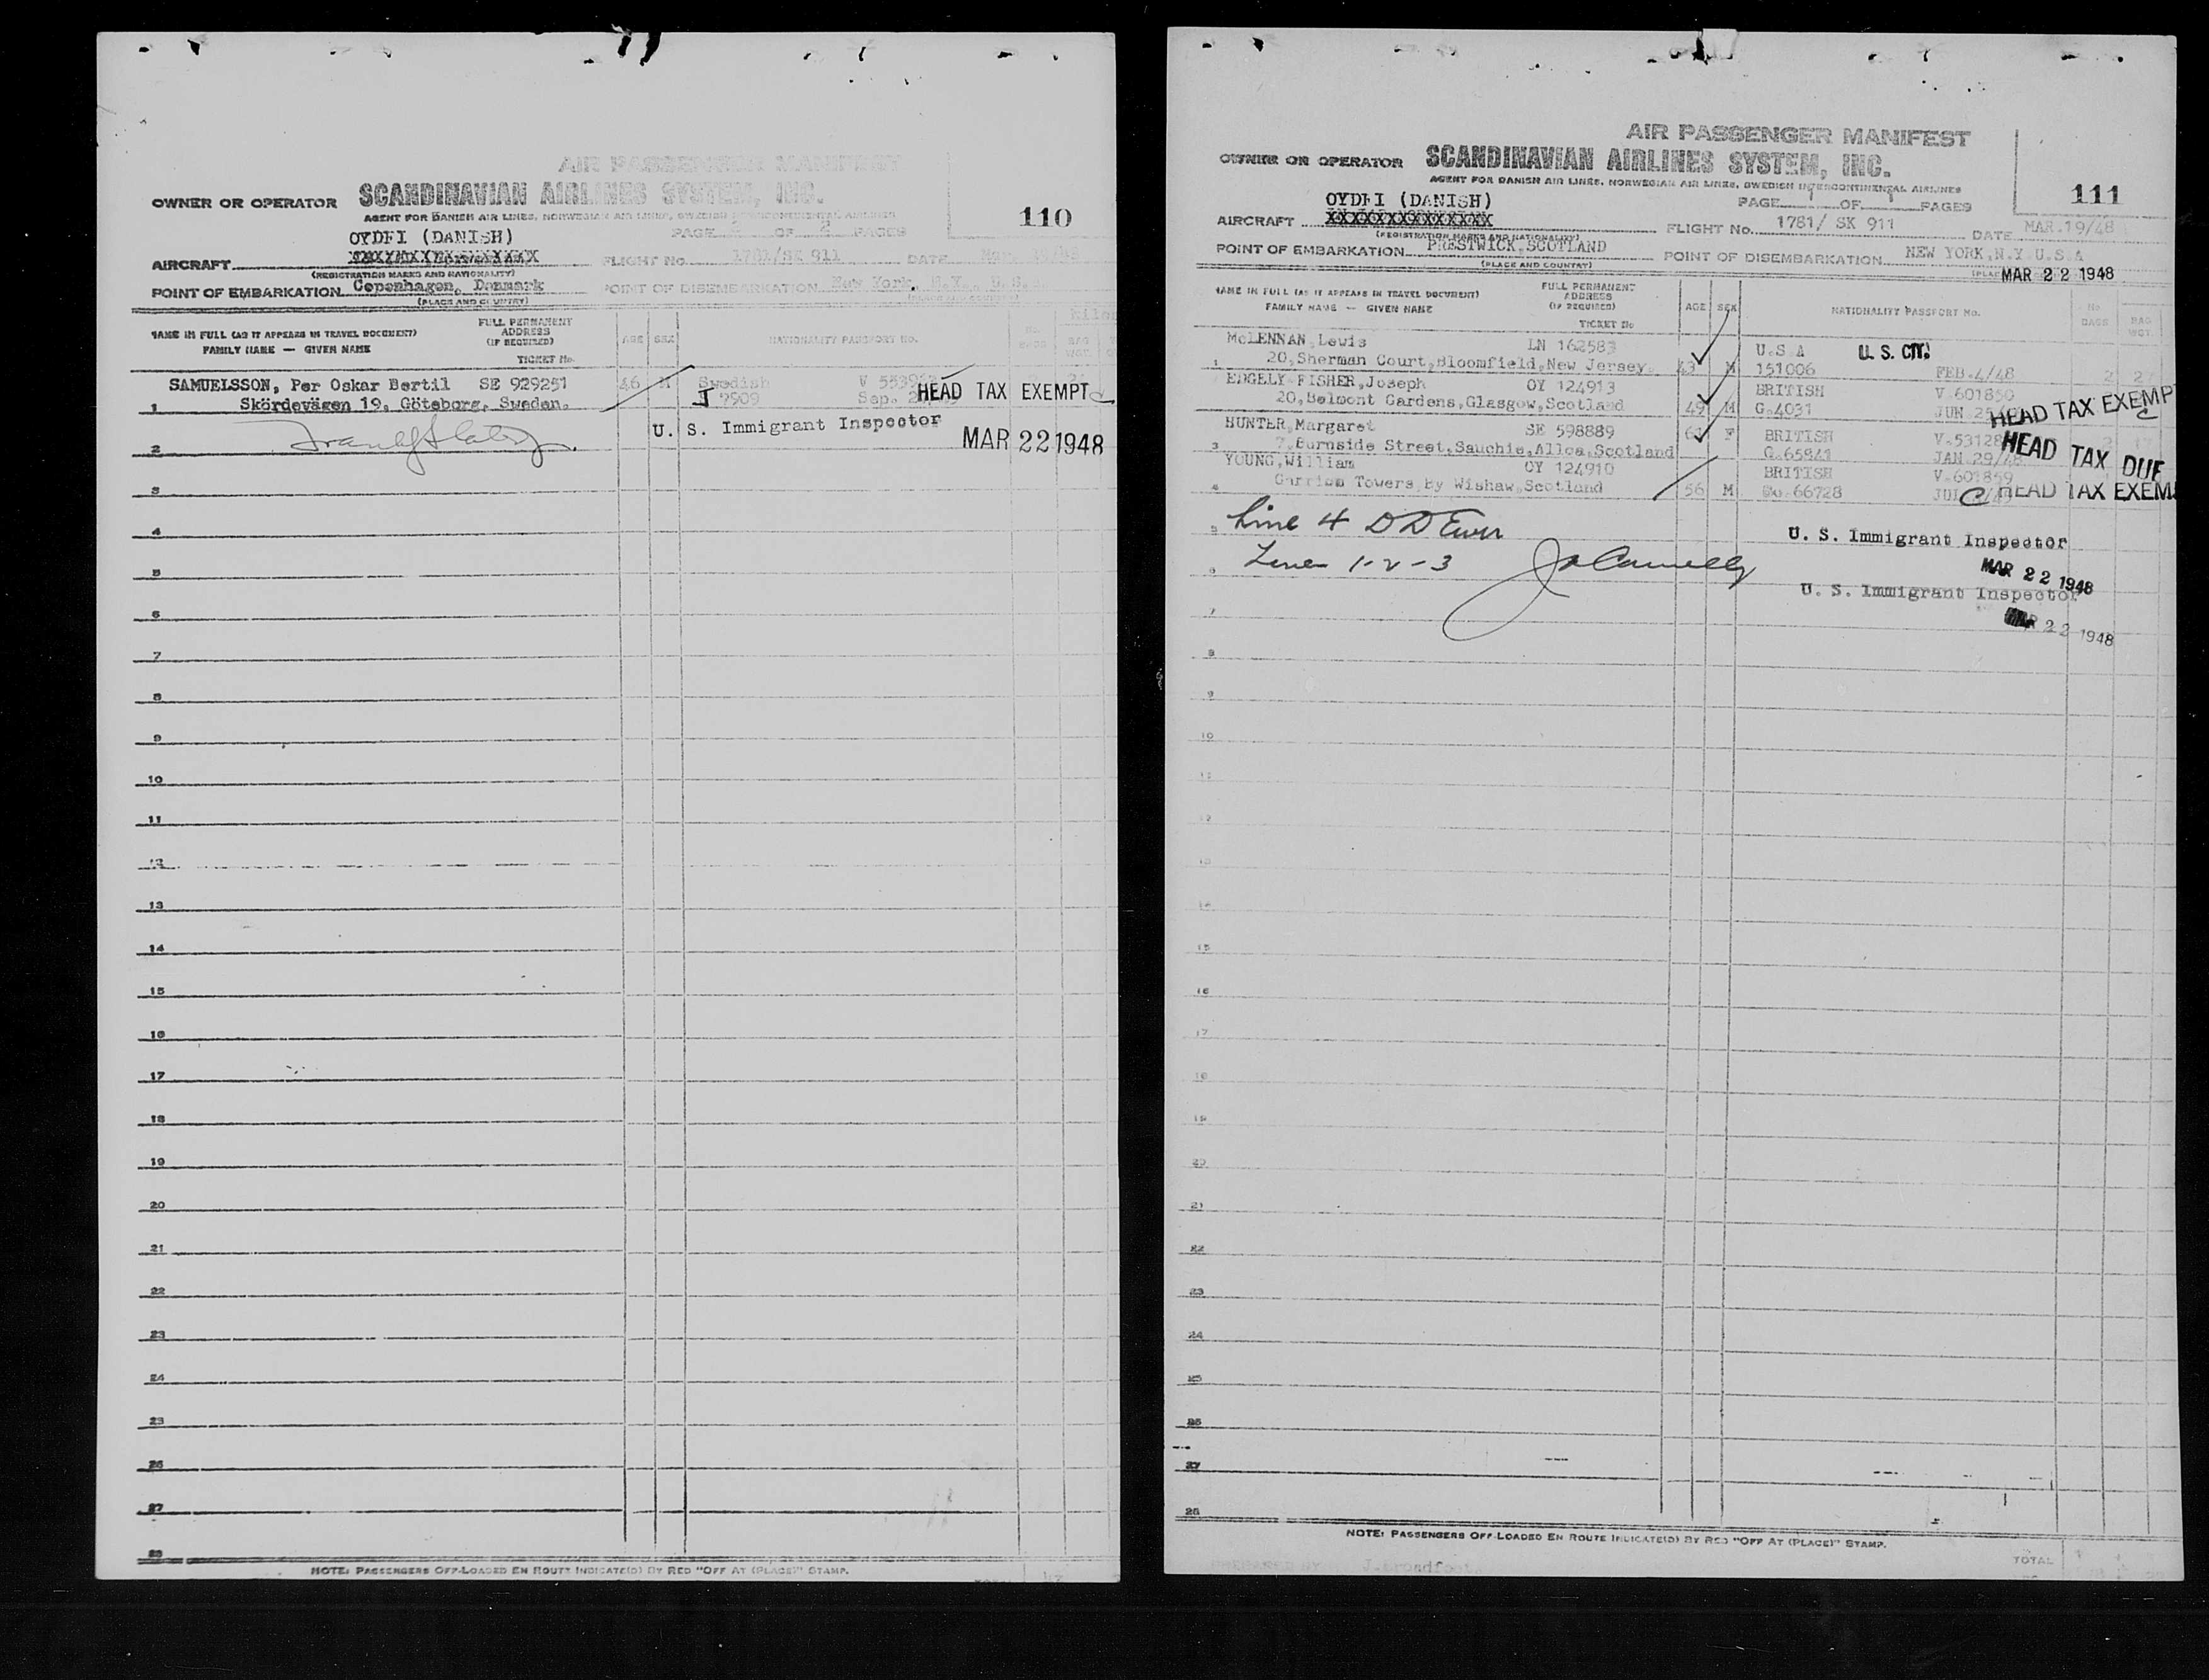 AIR PASSENGER MANIFEST
OWNER OR OPERATOR SCANDINAVIAN AIRLINES SYSTEM, INC.
AGENT FOR DANISH AIR LINES, NORWEGIAN AIR LINES, SWEDISH INTERCONTINENTAL AIRLINES
110
PAGE 2 OF 2 PAGES
OYDFI (DANISH)
AIRCRAFT FLIGHT No. 1781/SK 911 DATE
(REGISTRATION MARKS AND NATIONALITY)
POINT OF EMBARKATION Copenhagen, Denmark POINT OF DISEMBARKATION New York, N.Y. U.S.
(PLACE AND COUNTRY)
NAME IN FULL (AS IT APPEARS IN TRAVEL DOCUMENT)
FAMILY NAME — GIVEN NAME
FULL PERMANENT ADDRESS (IF REQUIRED)
TICKET No.
AGE SEX NATIONALITY PASSPORT NO. NO. BAGS BAG WGT.
SAMUELSSON, Per Oskar Bertil SE 929251 46 M Swedish
1 Skördevägen 19, Göteborg, Sweden. 7909 Sep. HEAD TAX EXEMPT
U. S. Immigrant Inspector
2 MAR 22 1948
3
4
5
6
7
8
9
10
11
12
13
14
15
16
17
18
19
20
21
22
23
24
25
26
27
28
NOTE: PASSENGERS OFF-LOADED EN ROUTE INDICATE(D) BY RED "OFF AT (PLACE)" STAMP.
AIR PASSENGER MANIFEST
OWNER OR OPERATOR SCANDINAVIAN AIRLINES SYSTEM, INC.
AGENT FOR DANISH AIR LINES, NORWEGIAN AIR LINES, SWEDISH INTERCONTINENTAL AIRLINES
111
PAGE 1 OF 1 PAGES
OYDFI (DANISH)
AIRCRAFT XXXXXXXXXXXXXXXX FLIGHT No. 1781/ SK 911 DATE MAR.19/48
(REGISTRATION MARKS AND NATIONALITY)
POINT OF EMBARKATION PRESTWICK,SCOTLAND POINT OF DISEMBARKATION NEW YORK,N.Y U.S.A
(PLACE AND COUNTRY)
MAR 22 1948
NAME IN FULL (AS IT APPEARS IN TRAVEL DOCUMENT)
FAMILY NAME — GIVEN NAME
FULL PERMANENT ADDRESS (IF REQUIRED)
TICKET No
AGE SEX NATIONALITY PASSPORT No. No BAGS BAG WGT.
McLENNAN,Lewis LN 162583 U.S A U. S. CIT.
1 20,Sherman Court,Bloomfield,New Jersey. 43 M 151006 FEB.4/48 2
EDGELY FISHER,Joseph OY 124913 BRITISH V.601850
20,Belmont Gardens,Glasgow,Scotland 49 M G.4031 HEAD TAX EXEMP
HUNTER,Margaret SE 598889 F BRITISH V.53128
3 7,Burnside Street,Sauchie,Alloa,Scotland G.65841 JAN.29/48 HEAD TAX DUE
YOUNG,William OY 124910 BRITISH V.601859
4 Garrion Towers,By Wishaw,Scotland 56 M 66728 HEAD TAX EXEM
5 Line 4 D D Ewer
U. S. Immigrant Inspector
6 Lines 1-2-3
MAR 22 1948
U. S. Immigrant Inspector
7
MAR 22 1948
8
9
10
11
12
13
14
15
16
17
18
19
20
21
22
23
24
25
26
27
28
NOTE: PASSENGERS OFF-LOADED EN ROUTE INDICATE(D) BY RED "OFF AT (PLACE)" STAMP.
PREPARED BY J.Broadfoot. TOTAL